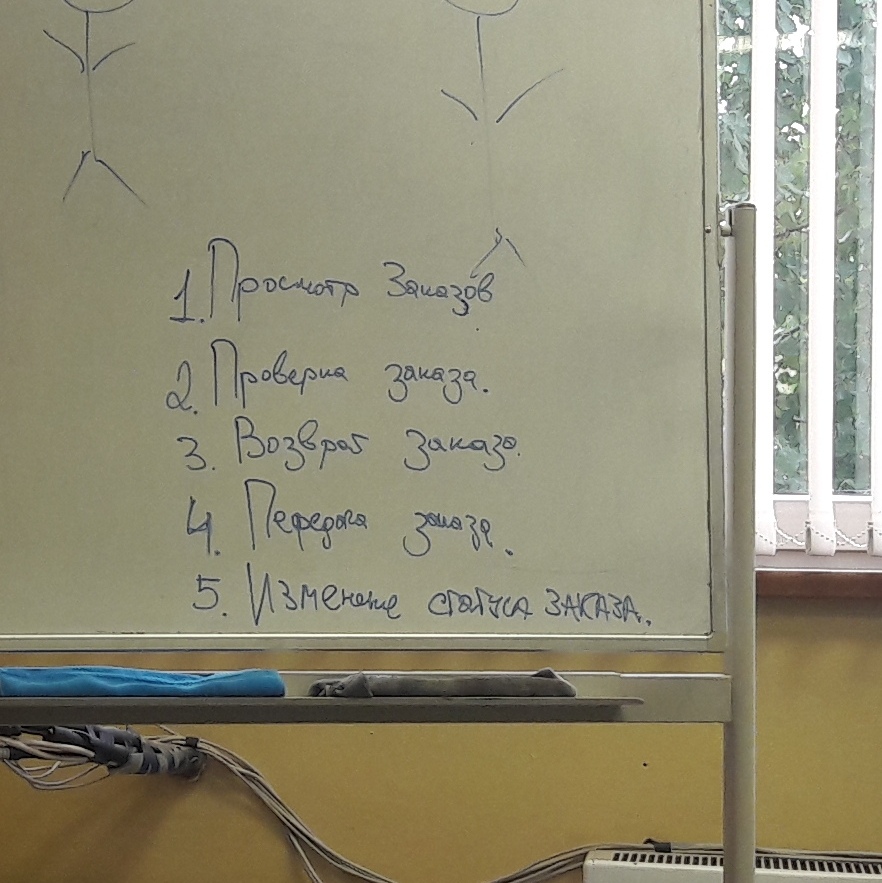 1. Просмотр Заказов
2. Проверка заказа.
3. Возврат заказа.
4. Передача заказа.
5. Изменение статуса ЗАКАЗА..